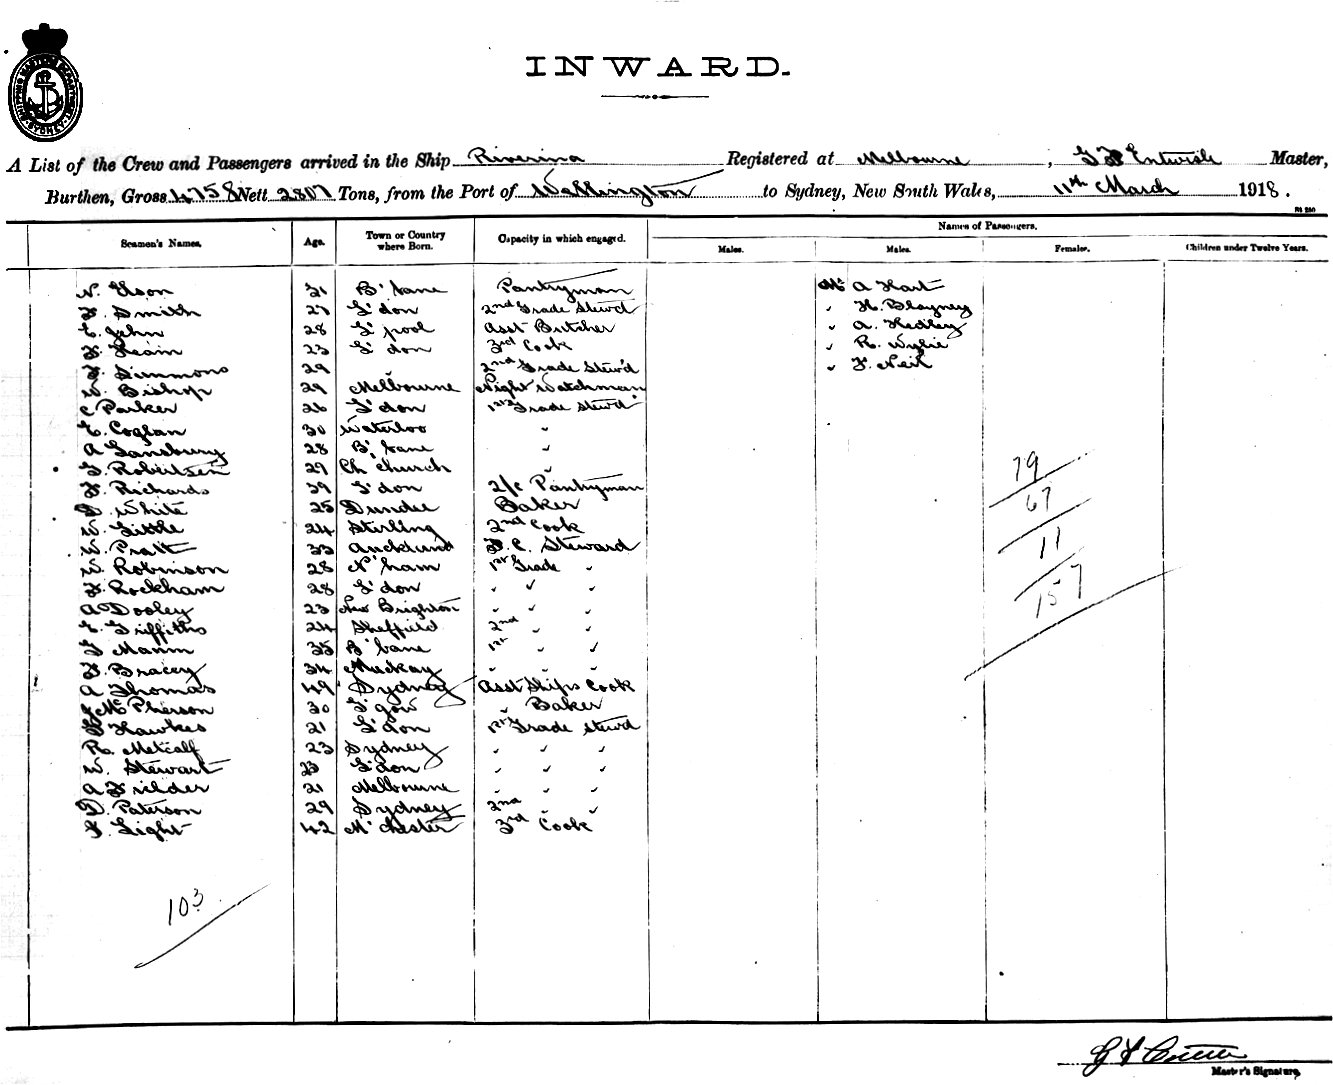 SHIPPING MASTERS DEPARTMENT SYDNEY
INWARD.
A List of the Crew and Passengers arrived in the Ship Riverina Registered at Melbourne, Entwisle Master,
Burthen, Gross 4758 Nett 2807 Tons, from the Port of Wellington to Sydney, New South Wales, 11th March 1918.
Seamen's Names. Age. Town or Country where Born. Capacity in which engaged. Names of Passengers.
Males. Males. Females. Children under Twelve Years.
N. Elson 31 B'bane Pantryman Mr A Hart
F. Smith 27 L'don 2nd Grade Stewd " H. Blayney
E. John 28 L'pool Asst Butcher " A. Hedley
23 L'don 3rd Cook " R. Wylie
F. Simmons 29 " 2nd Grade Stew'd " F. Neil
W. Bishop 29 Melbourne Night Watchman
C Parker 26 L'don 1st Grade Stewd
E. Coglan 30 Waterloo "
A Sansbury 28 B'bane "
G. Robertson 29 Ch'church "
F. Richards 39 L'don 2/c Pantryman
D. White 25 Dundee Baker
W. Little 24 Stirling 2nd Cook
W. Pratt 33 Auckland Steward
W. Robinson 28 N'ham 1st Grade "
F. Rockham 28 L'don " " "
A Dooley 23 New Brighton " " "
E. Griffiths 24 Sheffield 2nd " "
G Mann 35 B'bane 1st " "
F. Bracey 34 Mackay " " "
A Thomas 49 Sydney Asst Ships Cook
J McPherson 30 G'gow " Baker
Hawkes 21 L'don 1st Grade Stewd
R. Metcalf 23 Sydney " " "
W. Stewart 23 L'don " " "
A Filder 21 Melbourne " " "
D. Paterson 29 Sydney 2nd " "
F. Light 42 M'chester 3rd Cook
79
67
11
157
103
Master's Signature.